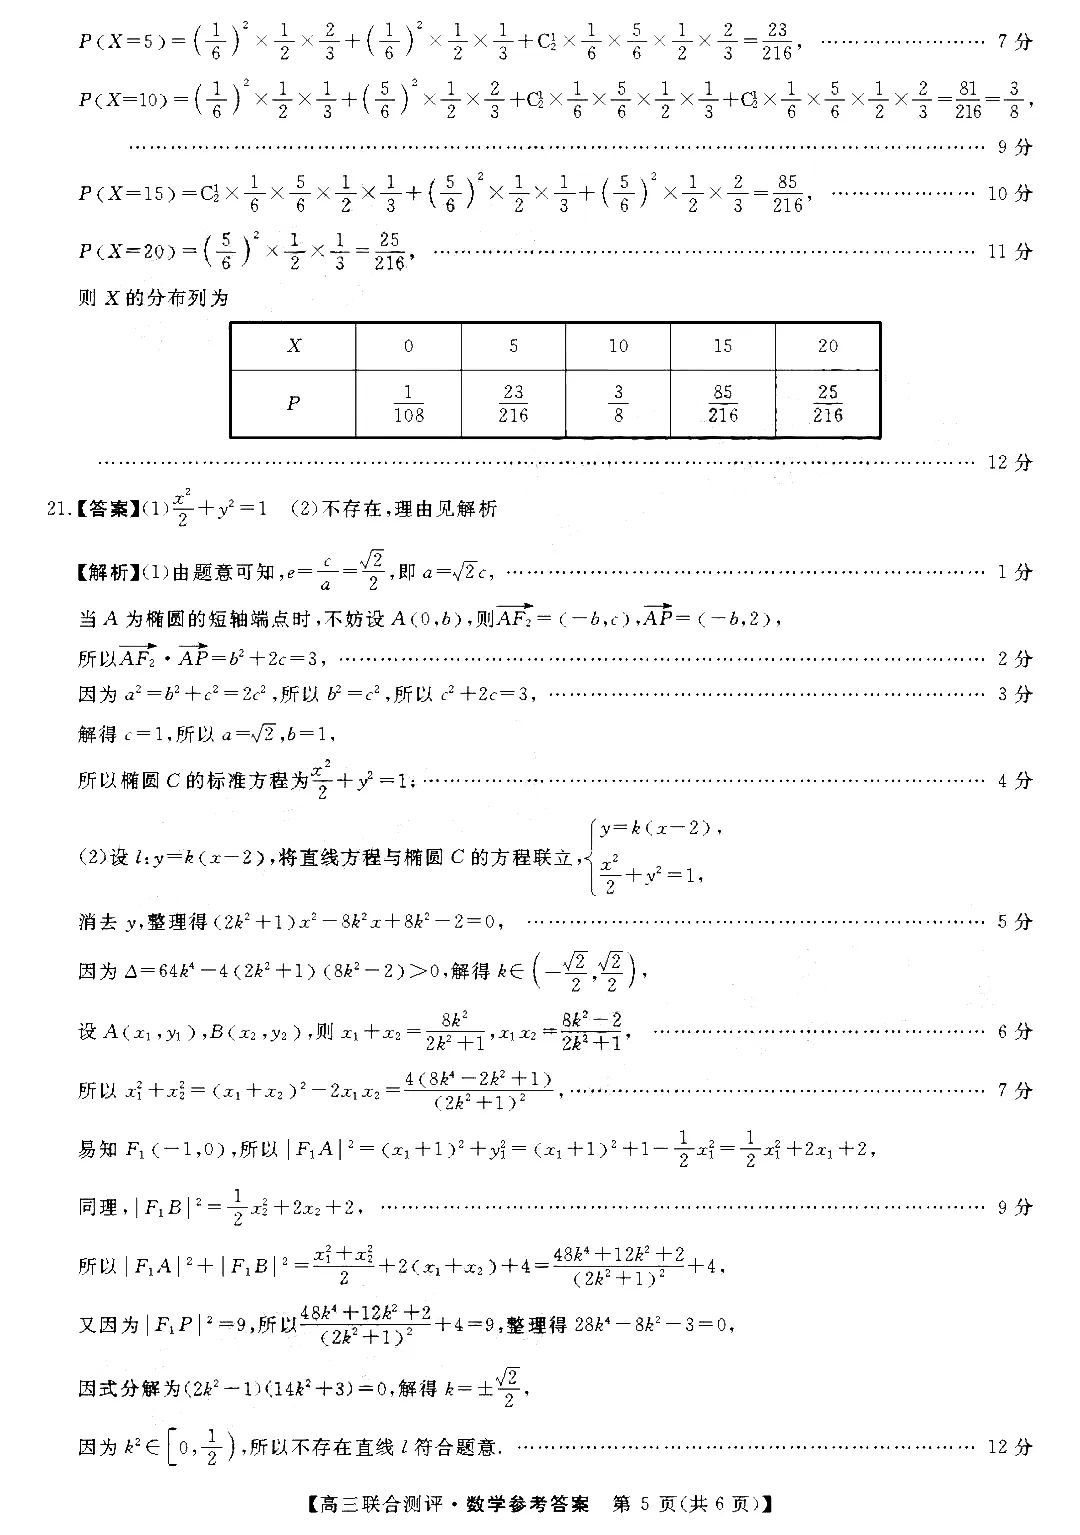 P(X=5)=(1/6)²×1/2×2/3+(1/6)²×1/2×1/3+C₂¹×1/6×5/6×1/2×2/3=23/216, …………………… 7 分
P(X=10)=(1/6)²×1/2×1/3+(5/6)²×1/2×2/3+C₂¹×1/6×5/6×1/2×1/3+C₂¹×1/6×5/6×1/2×2/3=81/216=3/8,
…………………… 9 分
P(X=15)=C₂¹×1/6×5/6×1/2×1/3+(5/6)²×1/2×1/3+(5/6)²×1/2×2/3=85/216, …………………… 10 分
P(X=20)=(5/6)²×1/2×1/3=25/216, …………………… 11 分
则 X 的分布列为
X 0 5 10 15 20
P 1/108 23/216 3/8 85/216 25/216
…………………… 12 分
21.【答案】(1)x²/2+y²=1 (2)不存在,理由见解析
【解析】(1)由题意可知,e=c/a=√2/2,即 a=√2c, …………………… 1 分
当 A 为椭圆的短轴端点时,不妨设 A(0,b),则AF₂→=(-b,c),AP→=(-b,2),
所以AF₂→·AP→=b²+2c=3, …………………… 2 分
因为 a²=b²+c²=2c²,所以 b²=c²,所以 c²+2c=3, …………………… 3 分
解得 c=1,所以 a=√2,b=1,
所以椭圆 C 的标准方程为x²/2+y²=1; …………………… 4 分
(2)设 l:y=k(x-2),将直线方程与椭圆 C 的方程联立,{y=k(x-2), x²/2+y²=1,
消去 y,整理得(2k²+1)x²-8k²x+8k²-2=0, …………………… 5 分
因为 Δ=64k⁴-4(2k²+1)(8k²-2)>0,解得 k∈(-√2/2,√2/2),
设 A(x₁,y₁),B(x₂,y₂),则 x₁+x₂=8k²/(2k²+1),x₁x₂=(8k²-2)/(2k²+1), …………………… 6 分
所以 x₁²+x₂²=(x₁+x₂)²-2x₁x₂=4(8k⁴-2k²+1)/(2k²+1)², …………………… 7 分
易知 F₁(-1,0),所以|F₁A|²=(x₁+1)²+y₁²=(x₁+1)²+1-1/2x₁²=1/2x₁²+2x₁+2,
同理,|F₁B|²=1/2x₂²+2x₂+2, …………………… 9 分
所以|F₁A|²+|F₁B|²=(x₁²+x₂²)/2+2(x₁+x₂)+4=(48k⁴+12k²+2)/(2k²+1)²+4,
又因为|F₁P|²=9,所以(48k⁴+12k²+2)/(2k²+1)²+4=9,整理得 28k⁴-8k²-3=0,
因式分解为(2k²-1)(14k²+3)=0,解得 k=±√2/2,
因为 k²∈[0,1/2),所以不存在直线 l 符合题意. …………………… 12 分
【高三联合测评·数学参考答案 第 5 页(共 6 页)】